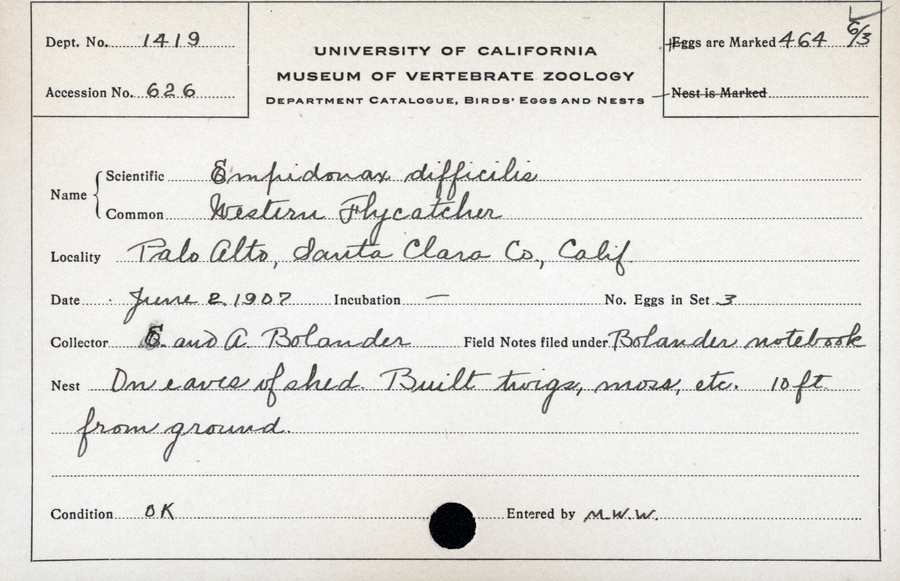 Dept. No. 1419
Accession No. 626
UNIVERSITY OF CALIFORNIA
MUSEUM OF VERTEBRATE ZOOLOGY
DEPARTMENT CATALOGUE, BIRDS' EGGS AND NESTS
Eggs are Marked 464 6/3
Nest is Marked
Name
Scientific Empidonax difficilis
Common Western Flycatcher
Locality Palo Alto, Santa Clara Co., Calif.
Date June 2, 1907 Incubation — No. Eggs in Set 3
Collector E. and A. Bolander Field Notes filed under Bolander notebook
Nest On eaves of shed. Built twigs, moss, etc. 10 ft.
from ground.
Condition OK Entered by M.W.W.